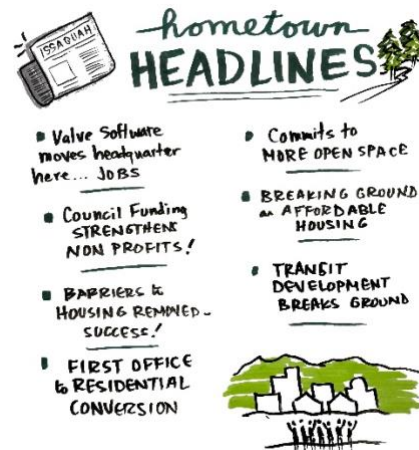 ISSAQUAH
hometown
HEADLINES
Valve Software
moves headquarter
here... JOBS
Council Funding
STRENGTHENS
NON PROFITS!
BARRIERS to
HOUSING REMOVED-
SUCCESS!
FIRST OFFICE
to RESIDENTIAL
CONVERSION
Commits to
MORE OPEN SPACE
BREAKING GROUND
on AFFORDABLE
HOUSING
TRANSIT
DEVELOPMENT
BREAKS GROUND